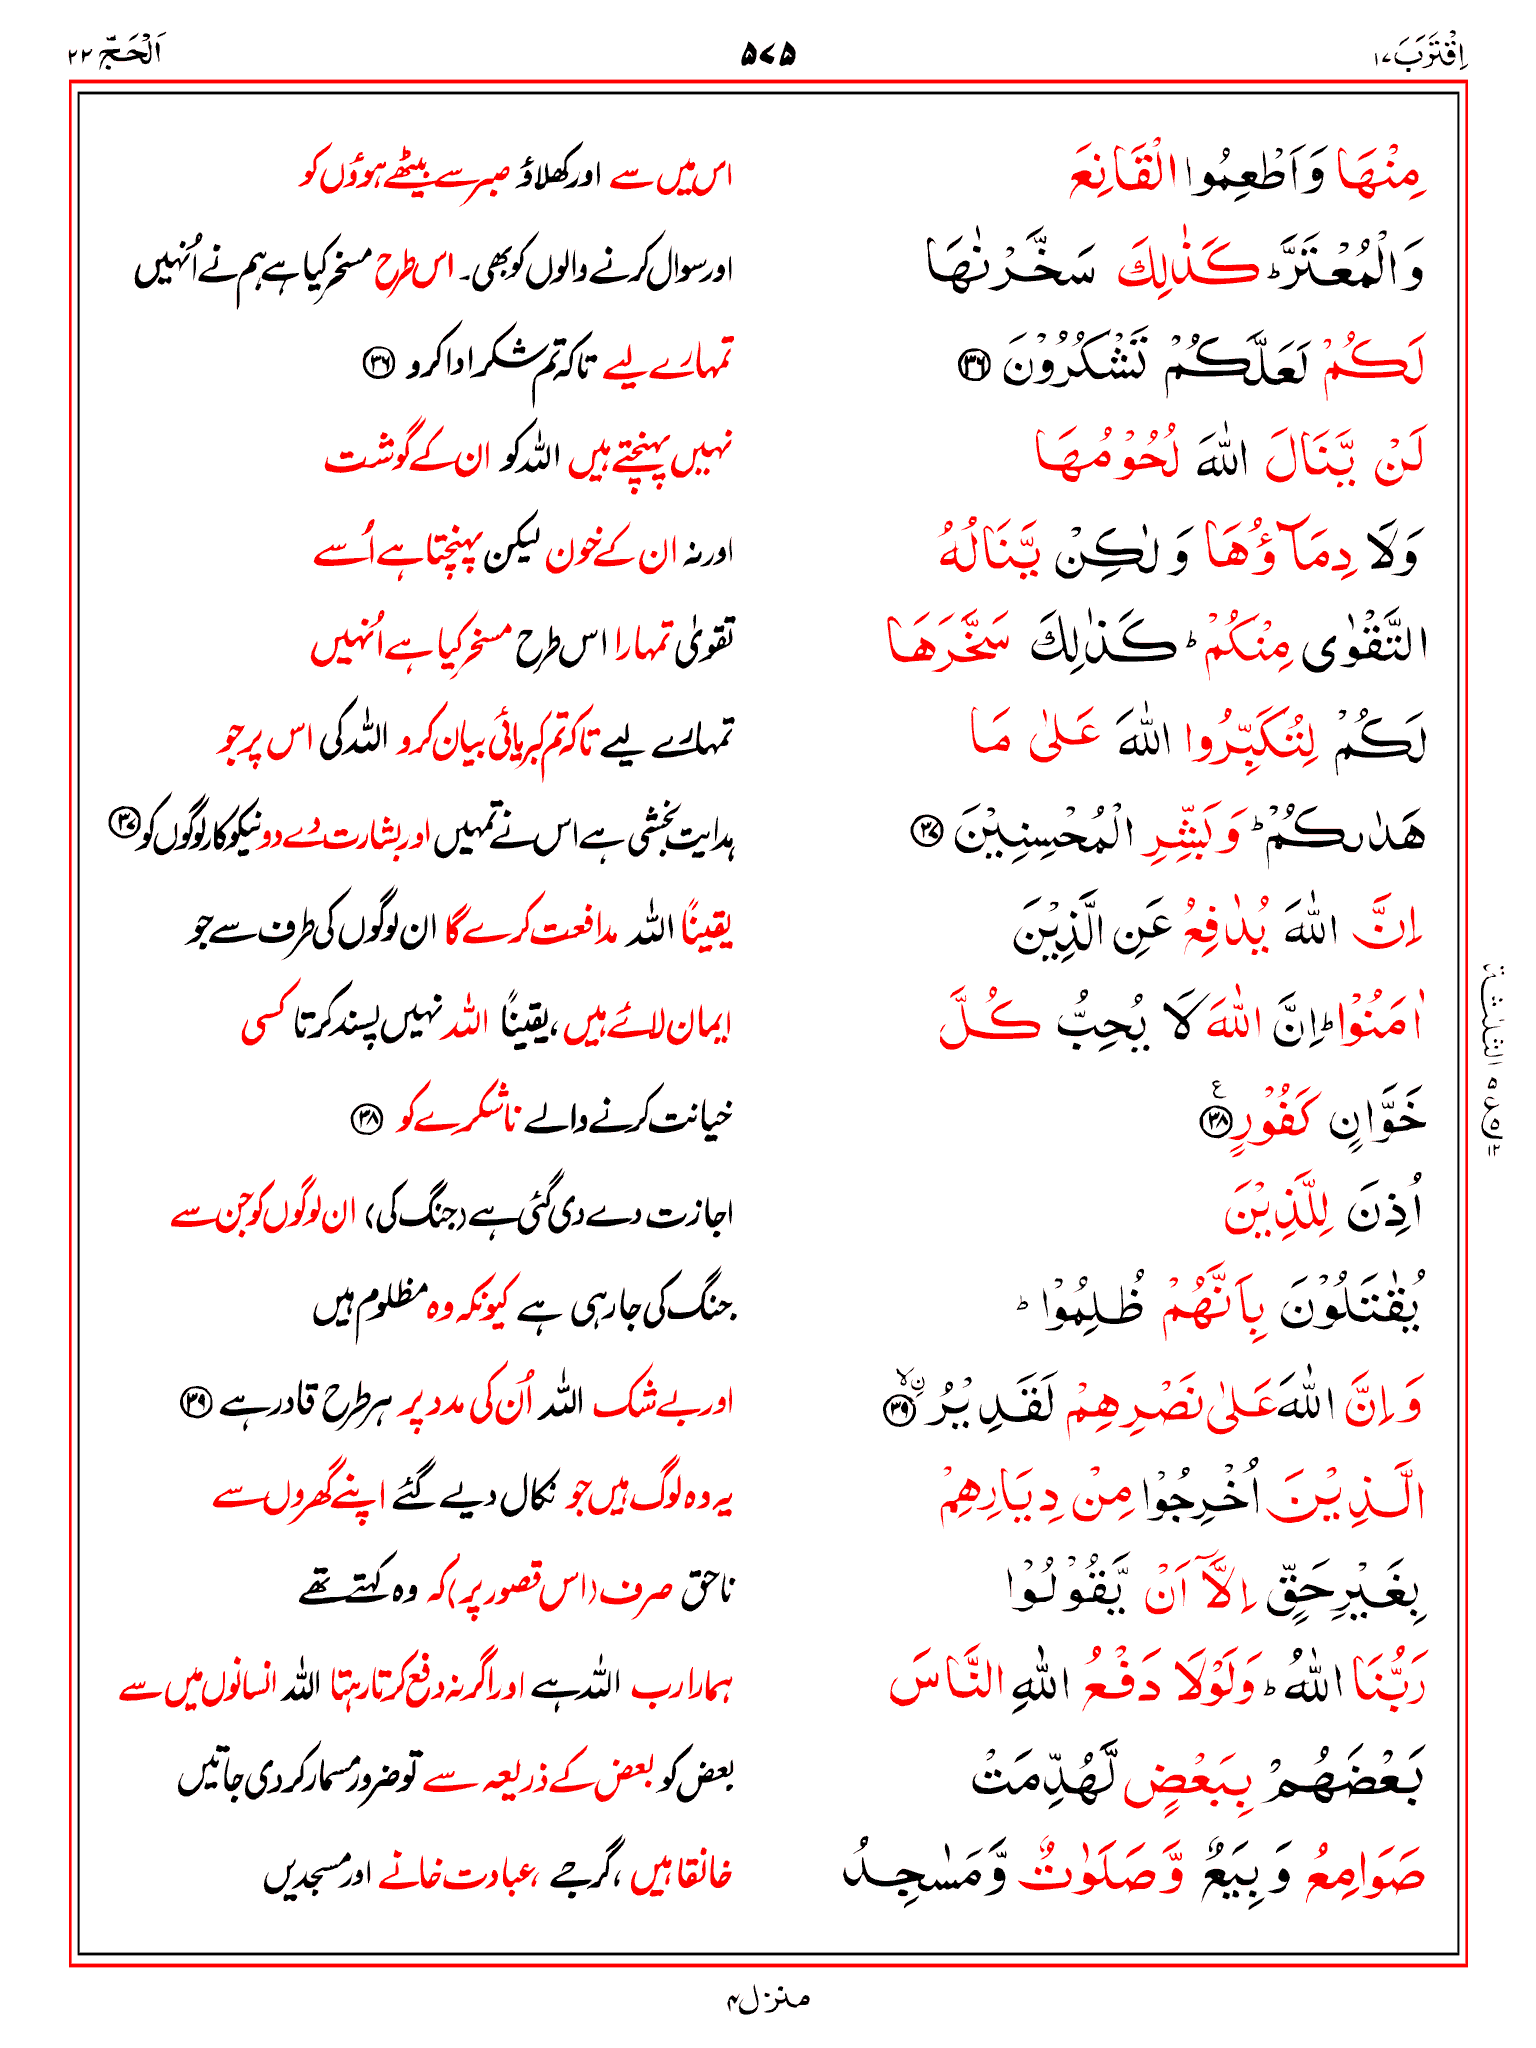 اِقْتَرَبَ ١٧
۵۷۵
اَلْحَجّ ٢٢
مِنْهَا وَاَطْعِمُوا الْقَانِعَ
اس میں سے اور کھلاؤ صبر سے بیٹھے ہوؤں کو
وَالْمُعْتَرَّ ؕ كَذٰلِكَ سَخَّرْنٰهَا
اور سوال کرنے والوں کو بھی۔ اس طرح مسخر کیا ہے ہم نے اُنہیں
لَكُمْ لَعَلَّكُمْ تَشْكُرُوْنَ ﴿۳۶﴾
تمہارے لیے تاکہ تم شکر ادا کرو ﴿۳۶﴾
لَنْ يَّنَالَ اللّٰهَ لُحُوْمُهَا
نہیں پہنچتے ہیں اللہ کو ان کے گوشت
وَلَا دِمَآؤُهَا وَلٰكِنْ يَّنَالُهُ
اور نہ ان کے خون لیکن پہنچتا ہے اُسے
التَّقْوٰى مِنْكُمْ ؕ كَذٰلِكَ سَخَّرَهَا
تقویٰ تمہارا اس طرح مسخر کیا ہے اُنہیں
لَكُمْ لِتُكَبِّرُوا اللّٰهَ عَلٰى مَا
تمہارے لیے تاکہ تم کبریائی بیان کرو اللہ کی اس پر جو
هَدٰىكُمْ ؕ وَبَشِّرِ الْمُحْسِنِيْنَ ﴿۳۷﴾
ہدایت بخشی ہے اس نے تمہیں اور بشارت دے دو نیکو کار لوگوں کو ﴿۳۷﴾
اِنَّ اللّٰهَ يُدٰفِعُ عَنِ الَّذِيْنَ
یقیناً اللہ مدافعت کرے گا ان لوگوں کی طرف سے جو
اٰمَنُوْا ؕ اِنَّ اللّٰهَ لَا يُحِبُّ كُلَّ
ایمان لائے ہیں، یقیناً اللہ نہیں پسند کرتا کسی
خَوَّانٍ كَفُوْرٍ ﴿۳۸﴾ ع
خیانت کرنے والے ناشکرے کو ﴿۳۸﴾
اُذِنَ لِلَّذِيْنَ
اجازت دے دی گئی ہے (جنگ کی) ان لوگوں کو جن سے
يُقٰتَلُوْنَ بِاَنَّهُمْ ظُلِمُوْا ؕ
جنگ کی جارہی ہے کیونکہ وہ مظلوم ہیں
وَاِنَّ اللّٰهَ عَلٰى نَصْرِهِمْ لَقَدِيْرُ ۨ ﴿۳۹﴾ ۙ
اور بے شک اللہ اُن کی مدد پر ہر طرح قادر ہے ﴿۳۹﴾
الَّذِيْنَ اُخْرِجُوْا مِنْ دِيَارِهِمْ
یہ وہ لوگ ہیں جو نکال دیے گئے اپنے گھروں سے
بِغَيْرِ حَقٍّ اِلَّآ اَنْ يَّقُوْلُوْا
ناحق صرف (اس قصور پر) کہ وہ کہتے تھے
رَبُّنَا اللّٰهُ ؕ وَلَوْلَا دَفْعُ اللّٰهِ النَّاسَ
ہمارا رب اللہ ہے اور اگر نہ دفع کرتا رہتا اللہ انسانوں میں سے
بَعْضَهُمْ بِبَعْضٍ لَّهُدِّمَتْ
بعض کو بعض کے ذریعہ سے تو ضرور مسمار کر دی جاتیں
صَوَامِعُ وَبِيَعٌ وَّصَلَوٰتٌ وَّمَسٰجِدُ
خانقاہیں، گرجے، عبادت خانے اور مسجدیں
منزل ۴